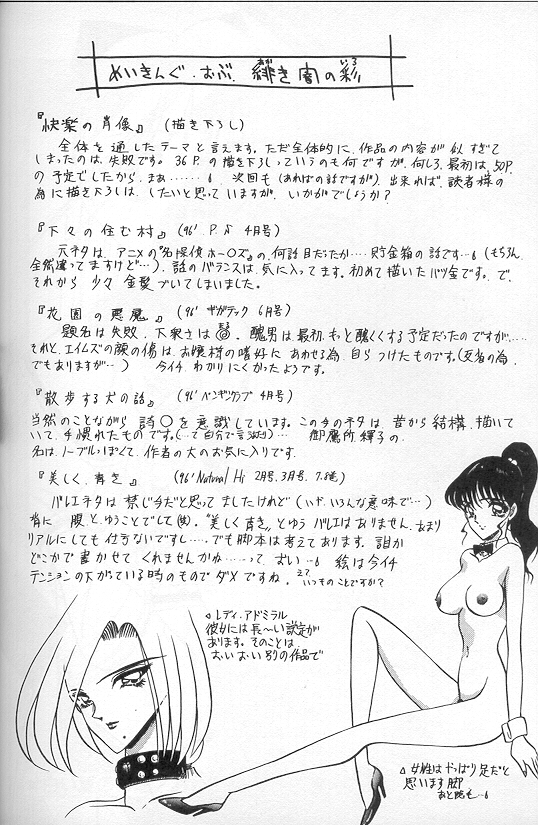 めいきんぐ・おぶ・緋き闇の彩
『快楽の肖像』 (描き下ろし)
全体を通したテーマと言えます。ただ全体的に、作品の内容が似すぎて
しまったのは、失敗です。36Pの描き下ろしっていうのも何ですが、何しろ、最初は、50P.
の予定でしたから、まぁ…… 次回も(あればの話ですが)、出来れば、読者様の
為に描き下ろしは、したいと思っていますが、いかがでしょうか?
『下々の住む村』 (96' 4月号)
元ネタは、アニメの"名探偵ホー○ズ"の、何話目だったか…、貯金箱の話です…(もちろん、
全然違ってますけど…)、話のバランスは、気に入ってます。初めて描いたパツ金です。で、
それから 少々 金髪づいてしまいました。
『花園の悪魔』 (96' ギガテック 6月号)
題名は失敗、下衆さは 醜男は、最初、もっと醜くくする予定だったのですが、…
それと、エイムズの顔の傷は、お嬢様の嗜好に あわせる為、自ら つけたものです。(忍者の為、
でもありますが…) 今イチ、わかりにくかったようです。
『散歩する犬の話』 (96' ペンギンクラブ 4月号)
当然のことながら 詩○を意識しています。この手のネタは、昔から 結構、描いて
いて、手慣れたものです。 御鷹所 輝子の、
名は、ノーブルっぽくて、作者の大のお気に入りです。
『美しく、青き』 (96' Natural Hi 2月号、3月号、)
バレエネタは 禁じ手だと思ってましたけれど (いや、いろんな意味で…)
背に 腹と、ゆうことでして 、"美しく青き"とゆう バレエはありません、あまり
リアルにしても 仕方ないですし…、でも脚本は考えてあります。誰か
どこかで 書かせて くれませんかね……って、おい… 絵は今イチ
テンションの下がっている時のもので ダメですね。いつものことですか?
レディ・アドミラル
彼女には長〜い設定が
あります。そのことは
おいおい別の作品で
女性は やっぱり足だと
思います 脚
あと腕も…